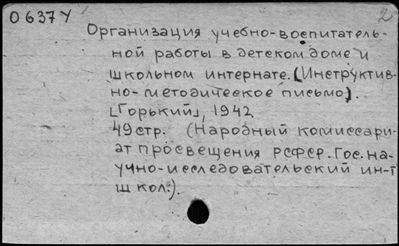 0637У
2
Организация учебно-воспитатель-
ной работы в детском доме и
школьном интернате. (Инструктив-
но-методическое письмо).
[Горький], 1942
49 стр. (Народный комиссари-
ат просвещения РСФСР. Гос. на-
учно-исследовательский ин-т
школ.).